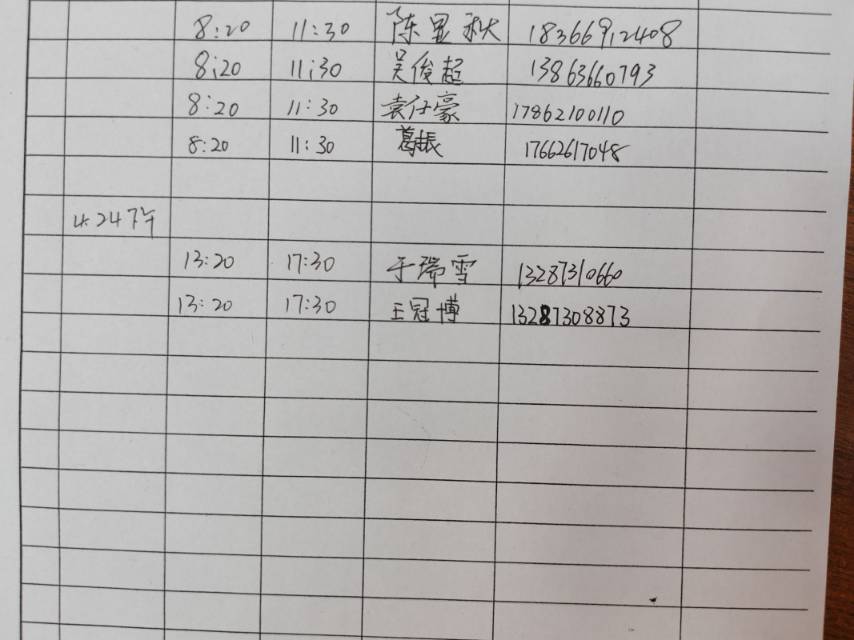 8:20 11:30 陈显秋 18366912408
8:20 11:30 吴俊超 13863660793
8:20 11:30 袁仕豪 17862100110
8:20 11:30 葛振 17662617048
4.24下午
13:20 17:30 于瑞雪 13287310660
13:20 17:30 王冠博 13287308873